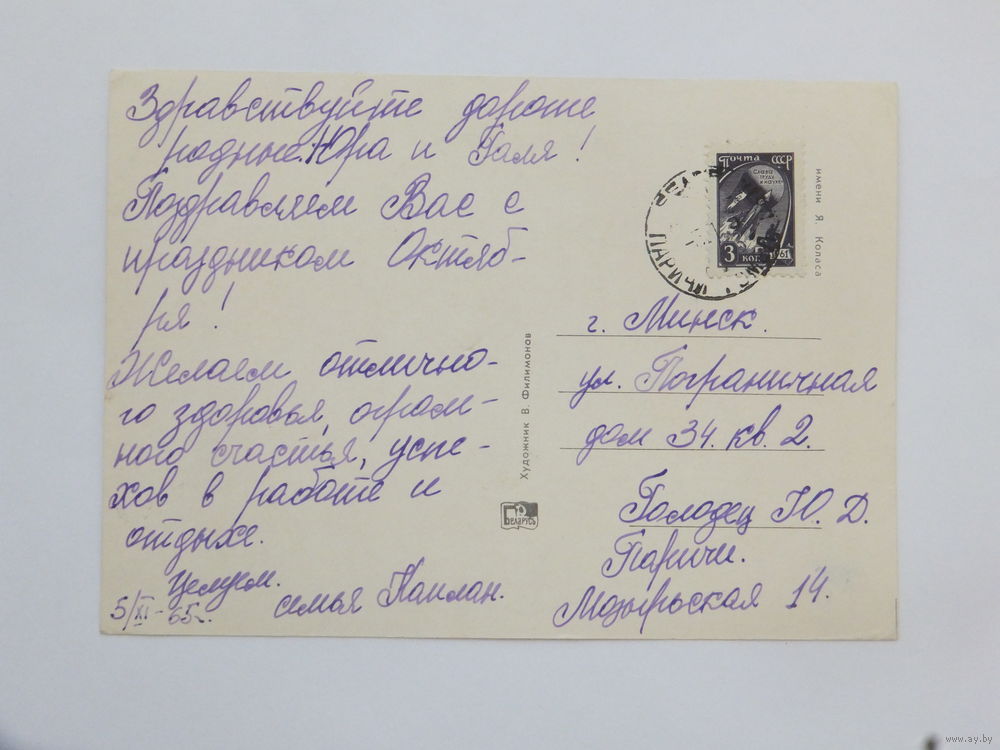 Здравствуйте дорогие
родные Юра и Галя!
Поздравляем Вас с
праздником Октяб-
ря!
Желаем отлично-
го здоровья, огром-
ного счастья, успе-
хов в работе и
отдыхе.
Целуем.
семья Каплан.
5/XI-65г.
Художник В. Филимонов
Беларусь
ПОЧТА СССР
СЛАВА
ТРУДУ
И НАУКЕ
3 КОП 1961
ПАРИЧИ
имени Я. Коласа
г. Минск.
ул. Пограничная
дом 34. кв. 2.
Голодец Ю. Д.
Паричи.
Мозырьская 14.
www.ay.by